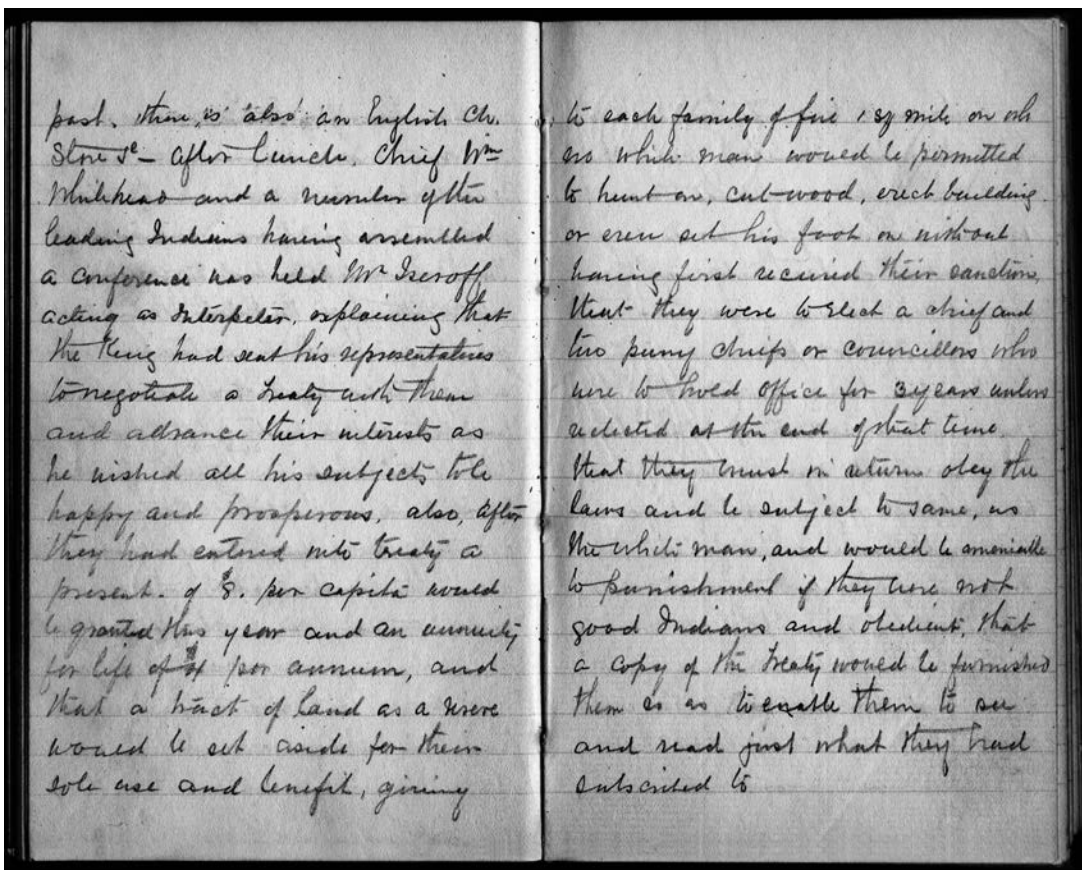 post. there is also an English Ch.
Store &c – after lunch, Chief Wm
Whitehead and a number of the
leading Indians having assembled
a conference was held Mr Iseroff
acting as Interpeter, explaining that
the King had sent his representatives
to negotiate a Treaty with them
and advance their interests as
he wished all his subjects to be
happy and prosperous, also, after
they had entered into treaty a
present of $8. per capita would
be granted this year and an annuity
for life of $4 per annum, and
that a tract of land as a reserve
would be set aside for their
sole use and benefit, giving
to each family of five 1 sq mile on wh
no white man would be permitted
to hunt on, cut wood, erect building
or even set his foot on without
having first received their sanction,
that they were to elect a chief and
two puny chiefs or councillors who
were to hold office for 3 years unless
relected at the end of that time.
that they must in return obey the
laws and be subject to same, as
the white man, and would be ameniable
to punishment if they were not
good Indians and obedient, that
a copy of the Treaty would be furnished
them so as to enable them to see
and read just what they had
subscribed to